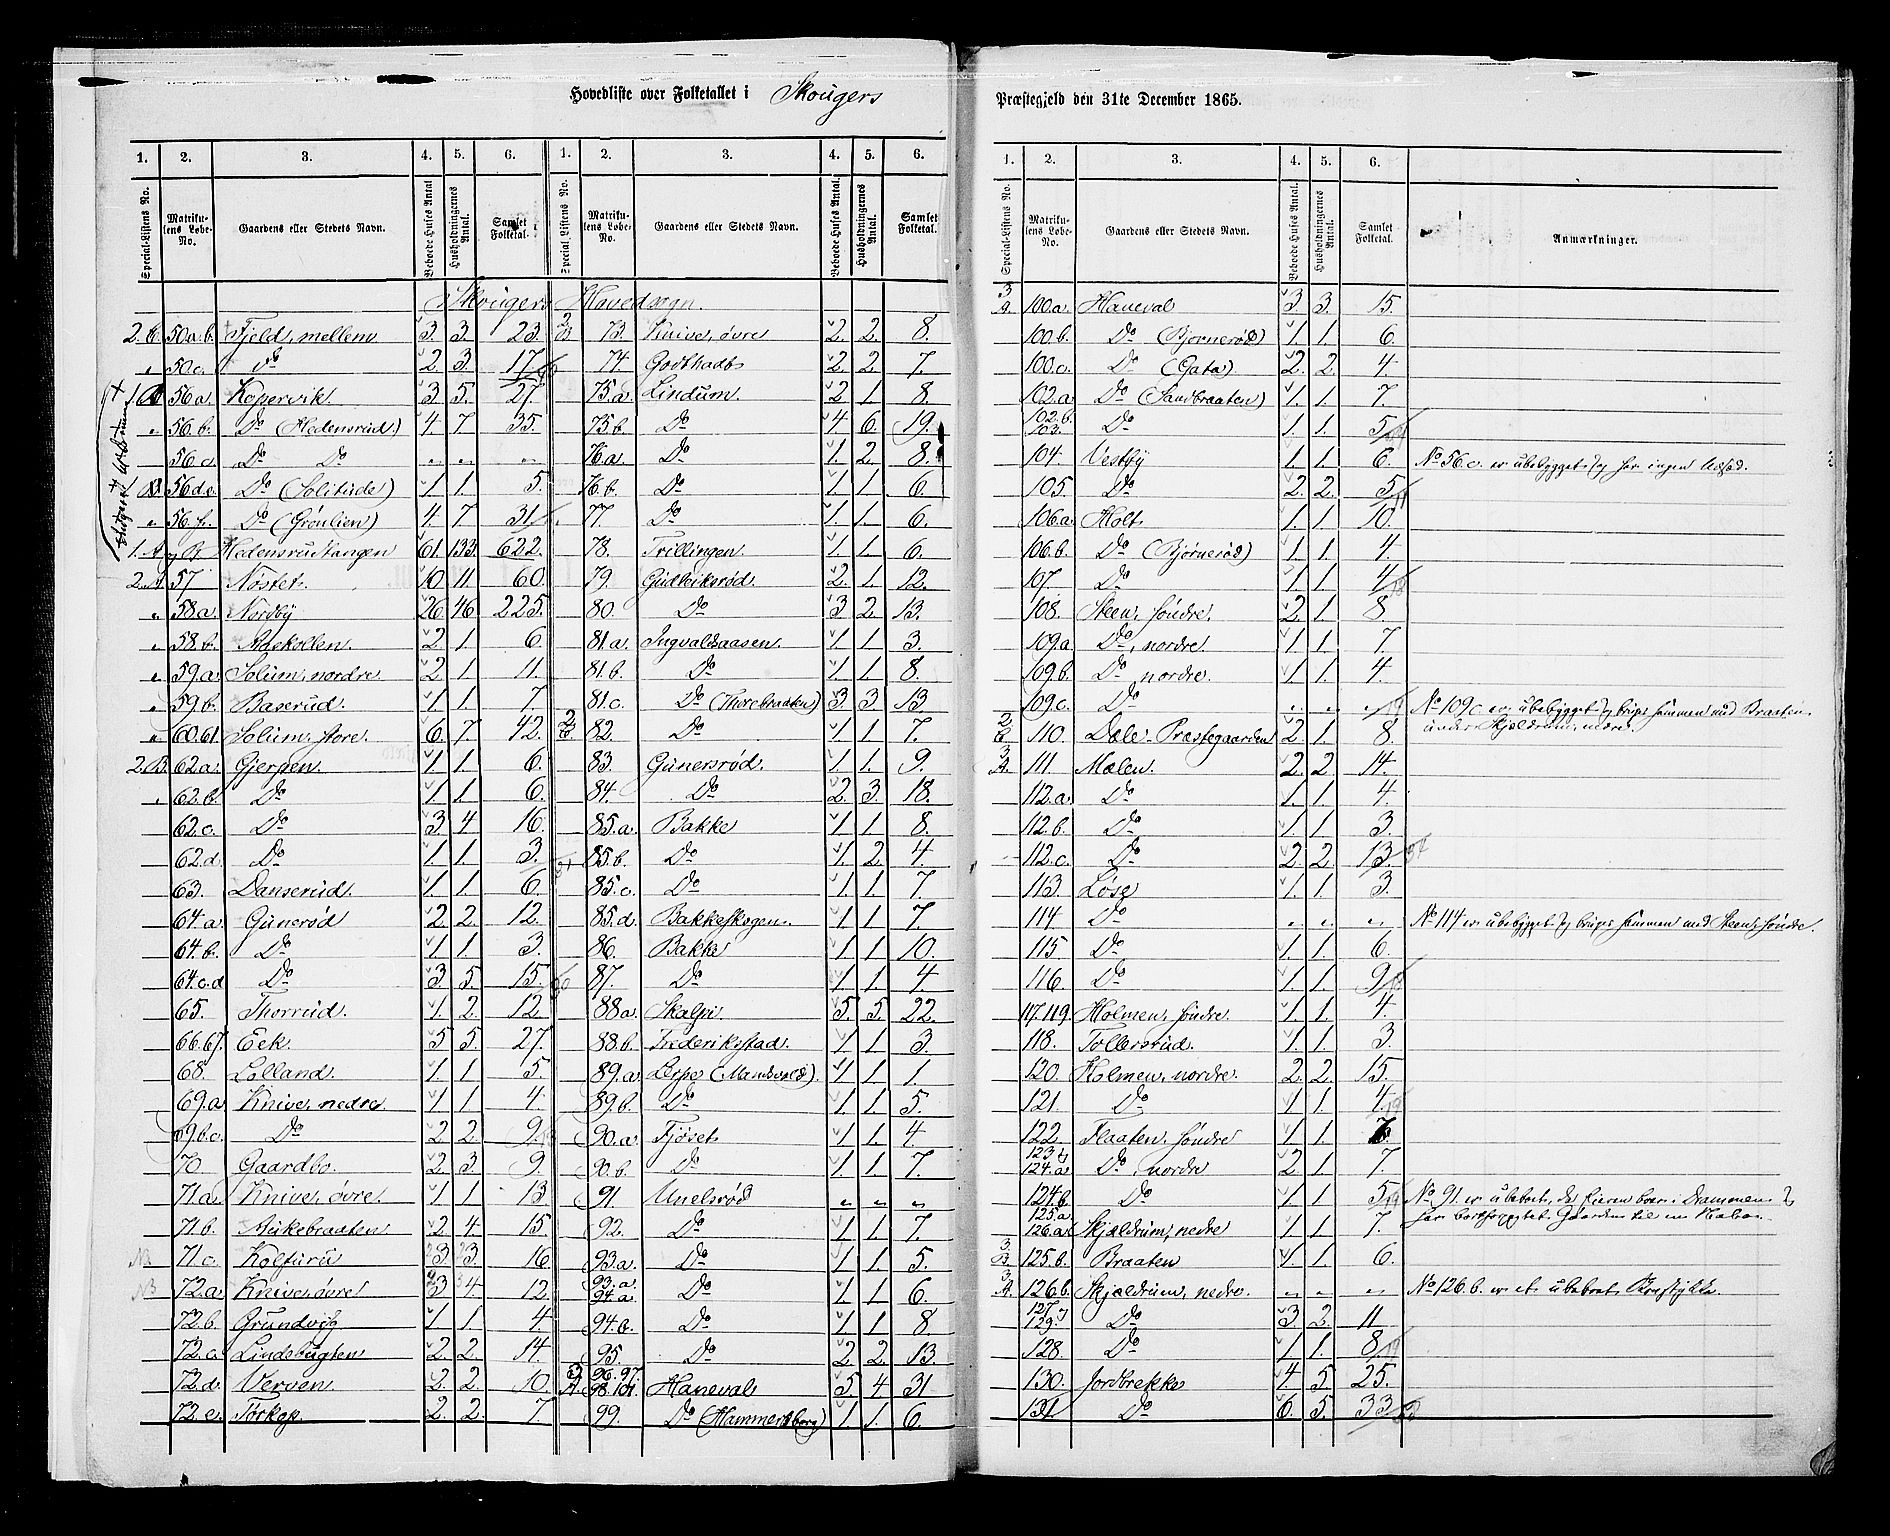 Hovedliste over Folketallet i Skougers Præstegjeld den 31te December 1865.
1. 2. 3. 4. 5. 6. 1. 2. 3. 4. 5. 6.
Special-Listens No. Matrikulens Løbe-No. Gaardens eller Stedets Navn. Beboede Huses Antal Husholdningernes Antal. Samlet Folketal. Special-Listens No. Matrikulens Løbe-No. Gaardens eller Stedets Navn. Beboede Huses Antal. Husholdningernes Antal. Samlet Folketal.
Skougers Hovedsogn.
2.C. 50a.b. Fjeld, mellem 3. 3. 23. 2 B 73. Knive, øvre 2. 2. 8.
" 50.c. do 2 3. 17 74 Godthaab 2 2 7.
1. 56a. Kopervik 3. 5. 27. 75.a. Lindum. 2 1. 8.
" 56.b. Do (Hedensrud.) 4. 7 35. 75b. Do 4 6. 19.
56.c Do Do " " " 76.a. Do 1. 2. 8.
56d.e. Do (Solitude) 1 1. 5. 76.b. Do 1. 1. 6.
" 56.f. Do (Grønlien) 4. 7 31 77. Do 1. 1. 6.
1.A og B. Hedensrudtangen 61. 133. 622. 78. Trillingen. 1. 1. 6.
2.A. 57 Nøstet. 10 11 60. 79. Gudleiksrød. 2. 1. 12.
" 58a. Nordby 26 46 225. 80. Do 3 2. 13.
" 58.b. Aaskollen. 2 1. 6. 81.a. Ingvaldsaasen. 1 1 3.
" 59.a. Solum, nordre 2 1 11. 81.b. Do 1 1. 8.
" 59.b. Baserud. 1 1. 7. 81.c. Do (Thorebraaten) 3. 3. 13
" 60.61 Solum, store. 6. 7 42. 2 C 82. Do 1 1. 7.
2.B. 62a. Gjerpen. 1 1. 6. 83. Gunersrød. 1 1. 9.
" 62.b. Do 1 1. 6. 84. Do 2. 3. 18.
62.c. Do 3 4 16. 85.a. Bakke 1 1 8.
62.d. Do 1 1. 3. 85.b. Do 1. 2. 4.
63. Danserud. 1. 1. 6. 85.c. Do 1 1. 7.
64.a. Gunerød 2. 2. 12. 85.d. Bakkeskogen. 1 1 7.
64.b. Do 1 1. 3. 86. Bakke 1 1 10.
64.c.d Do 3 5. 15. 87. Do 1 1 4
65. Thorrud. 1. 2. 12. 88a. Skalpi. 5. 5. 22.
66.67. Eek. 5 5. 27. 88.b. Frederiksstad. 1 1. 3.
68. Lolland. 1. 1 5 89.a. Lerpe (Mandsvold). 1 1. 1.
69.a. Knive, nedre. 1 1 4. 89.b. Do 1. 1. 5.
69.b.c. Do 2 2. 9. 90.a. Fjøset 1 1. 4.
70. Gaardbo. 2. 3. 9. 90.b. Do 1. 1. 7.
71.a. Knive, øvre. 1 1 13 91. Unelsrød " " "
71.b. Aukebraaten 2 4. 15. 92. Do 1 1 7.
NB 71.c. Kolfuru 3. 3. 16 93.a. Do 1 1 5.
NB 72.a. Knive, øvre 3 4. 12 93.a. 94.a. Do 1. 1 6.
72.b. Grundvig 1 1 4. 94.b. Do 1 1 8
72.c. Lindsbugten 2. 2. 14. 95. Do 2 2 13.
72.d. Verven. 2 2. 10. 3 A. 96.97. 98.101. Haneval 5 4 31
72.e. Torkop. 2. 2. 7 99. Do (Hammersborg) 1. 1. 6.
1. 2. 3. 4. 5. 6.
Special-Listens No. Matrikulens Løbe-No. Gaardens eller Stedets Navn. Beboede Huses Antal. Husholdningernes Antal. Samlet Folketal. Anmærkninger.
3 A. 100.a. Haneval 3 3. 15.
100.b. Do (Bjørnerød) 1. 1. 6.
100.c. Do (Gata) 2. 2. 4
102.a. Do (Sandbraaten) 1. 1. 7.
102.b. 103. Do 1. 1. 5
104. Vestby 1. 1. 6. No 56.c. er ubebygget og har ingen Udsæd.
105. Do 2. 2. 5
106.a. Holt. 1. 1. 10.
106.b. Do (Bjørnerød) 1. 1. 4.
107 Do 1 1. 4
108. Steen, søndre. 2. 1. 8.
109.a. Do, nordre. 1 1 7.
109.b. Do nordre. 1. 1. 4.
109.c. Do " " " No 109c er ubebygget og bruges sammen med Braaten
under Skjældrum, nedre.
2 C 110. Dale Præstegaarden 2. 1. 8.
3 A. 111. Mælen. 2. 2 14.
112.a. Do 1. 1. 4.
112.b. Do 1. 1. 3.
112.c. Do 2. 2. 13.
113. Løse 1. 1. 3.
114. Do " " " No 114 er ubebygget og bruges sammen med Steen, søndre.
115 Do 1. 1. 6.
116. Do 1 1. 9
117.119. Holmen, søndre. 1. 1. 4.
118. Tollersrud. 1. 1. 3.
120. Holmen, nordre. 2. 2. 15.
121. Do 1 1. 4.
122. Flaaten, søndre 1 1.
123 og 124.a. Do, nordre 2 1 7.
124.b. Do 1. 1. 5 No 91. er ubeboet, da Eieren boer i Drammen og
125.a. 126.a. Skjældrum, nedre 1 1. 7. har bortforpagtet Gaarden til en Nabo.
3 B. 125.b. Braaten 1. 1. 6.
3 A. 126b. Skjældrum, nedre. " " " No 126.b. er et ubeboet Brugstykke.
127 og 129. Do 3. 2. 11
128. Do 1 1. 8.
130. Jordbrekke 4. 5. 25.
131. Do 6. 5. 33